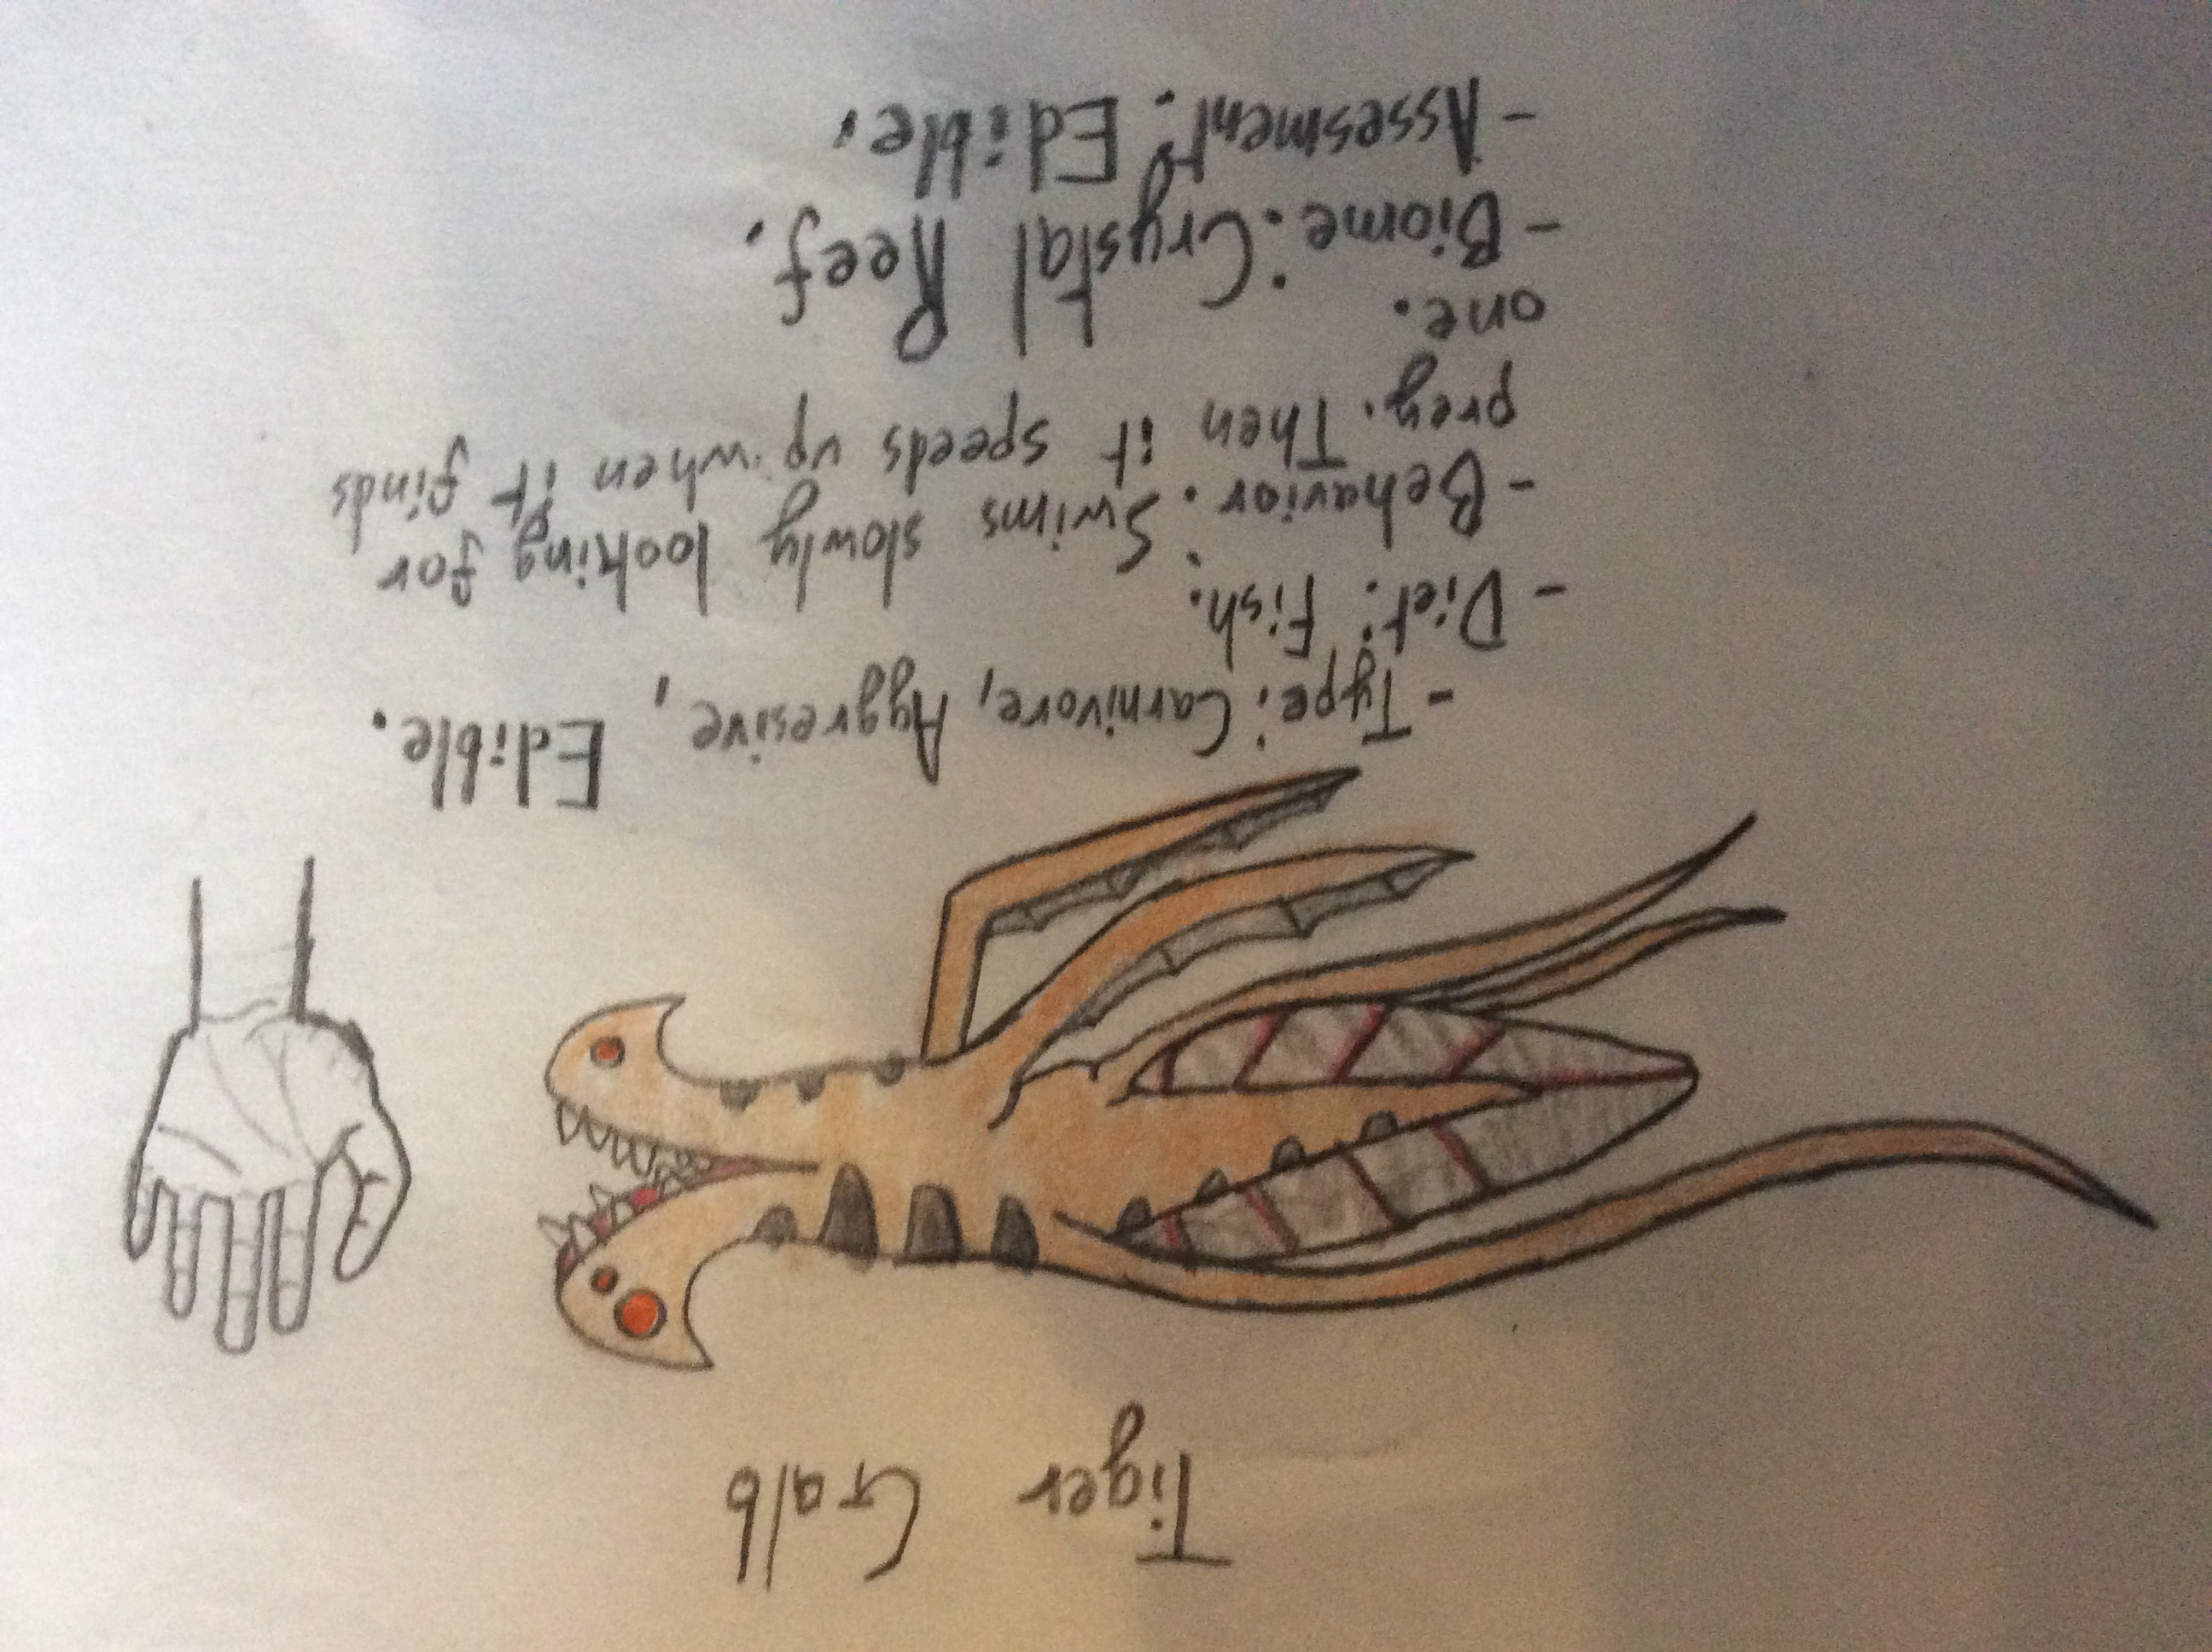 Tiger Galb
- Type: Carnivore, Aggresive, Edible.
- Diet: Fish.
- Behavior: Swims slowly looking for
prey. Then it speeds up when it finds
one.
- Biome: Crystal Reef.
- Assesment: Edible.